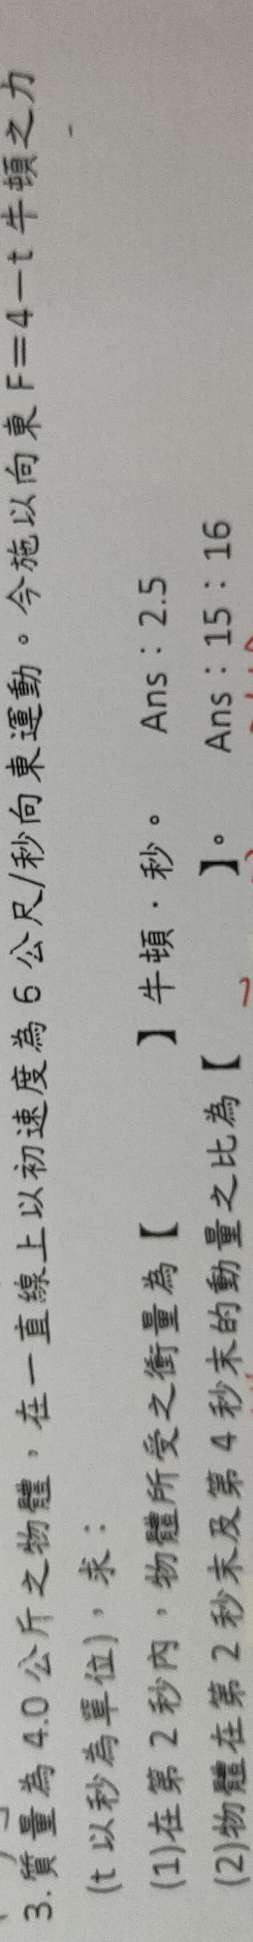 3. 質量為 4.0 公斤之物體，在一直線上以初速度為 6 公尺/秒向東運動。今施以向東 F=4－t 牛頓之力
(t 以秒為單位)，求：
(1)在第 2 秒內，物體所受之衝量為【　　】牛頓．秒。　Ans：2.5
(2)物體在第 2 秒末及第 4 秒末的動量之比為【　　】。　Ans：15：16